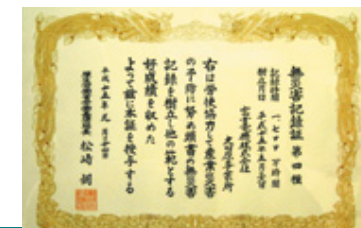 無災害記録証 第四種
記録時間 一、七〇〇 万時間
樹立月日 平成十五年五月
富士電機株式会社
大田原事業所
右は労使協力して産業災害
の予防に努め頭書の無災害
記録を樹立し他の範とする
好成績を収めた
よって茲に本証を授与する
平成十五年九月
松崎 朗